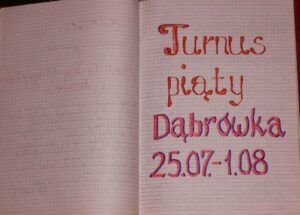 Turnus
piąty
Dąbrówka
25.07.-1.08